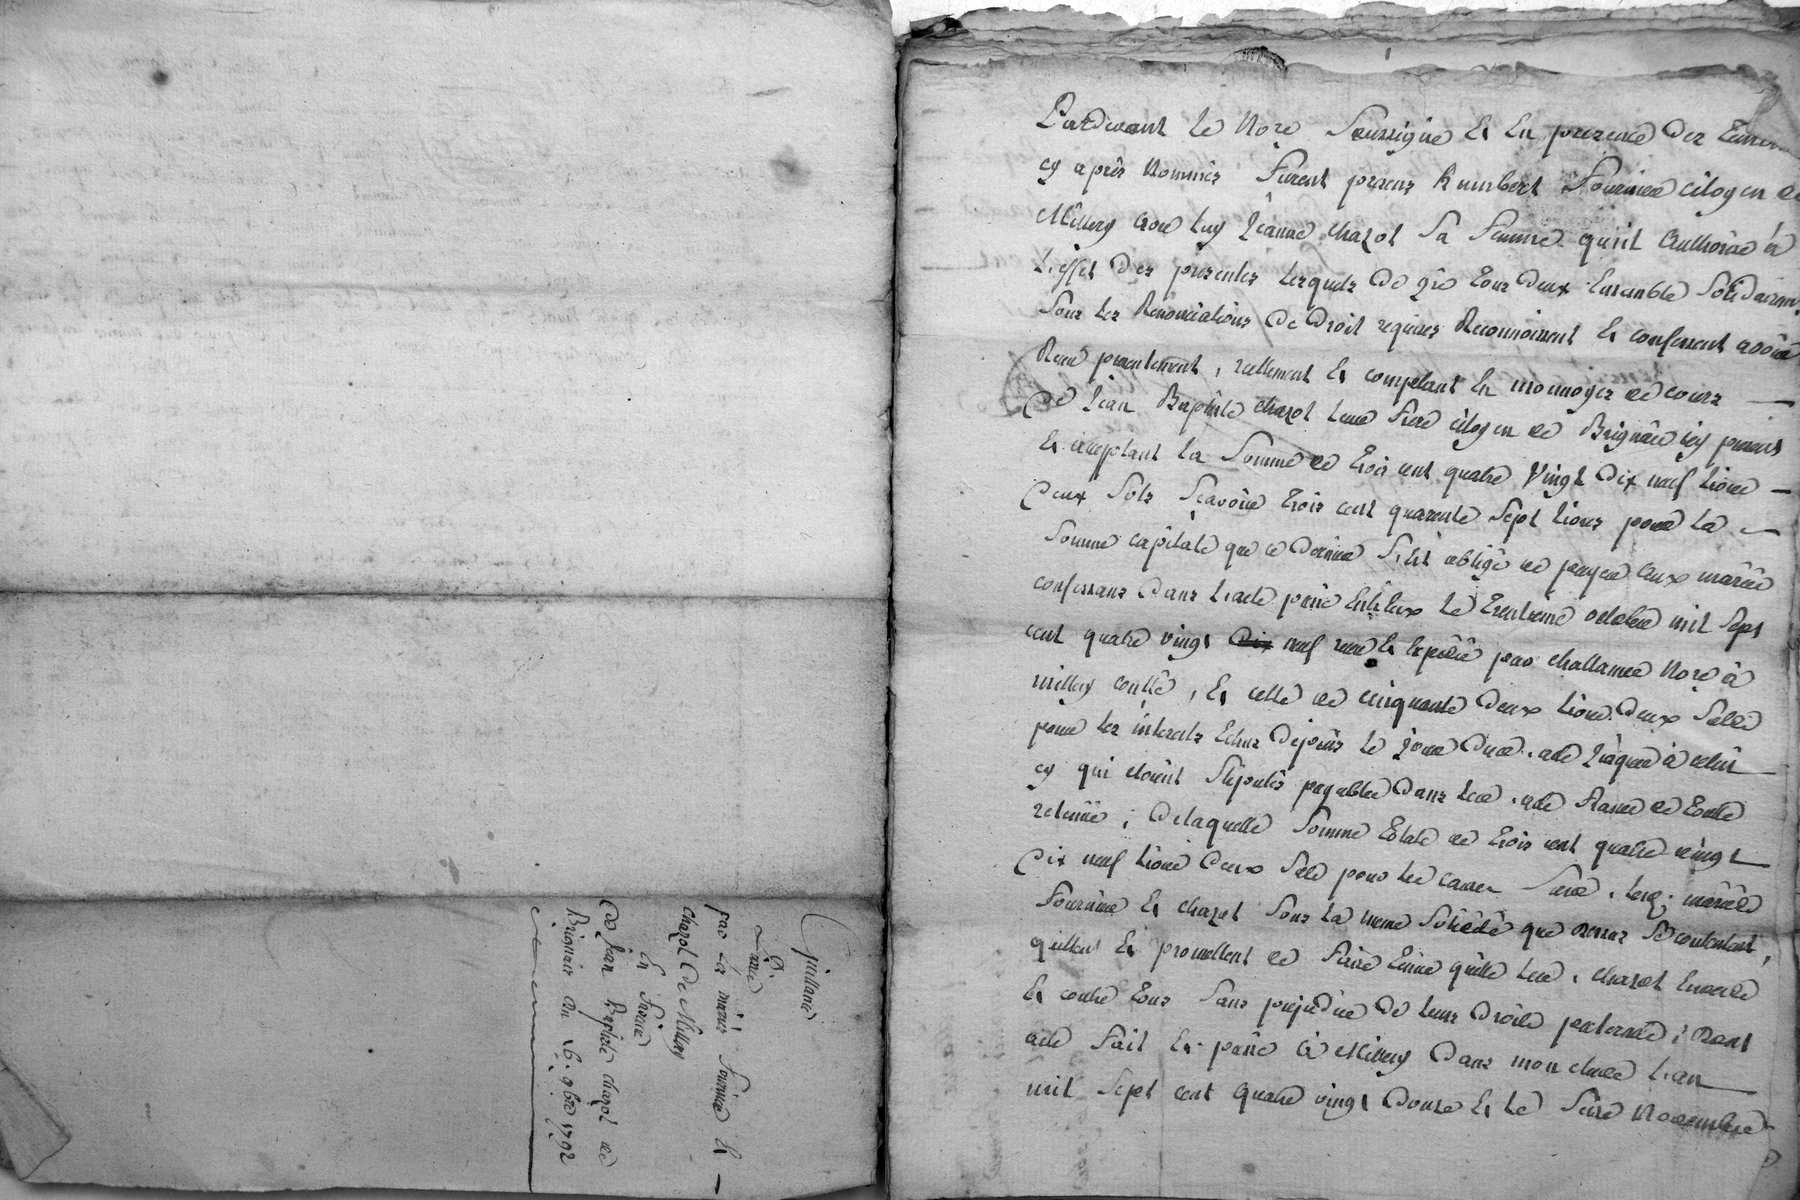 Quittance
Passée
par les mariés Fournier et
Chazot de Millery
En faveur
De Jean Baptiste chazot de
Brignais du 16. 9bre 1792
Pardevant le Nore Soussigné Et En presence des temoins
cy après Nommés Furent presens humbert Fournier citoyen de
Millery avec luy Jeanne chazot Sa Femme qu'il Authorise à
L'effet des presentes lesquels de gré tous deux Ensemble Solidairemt.
Sous les Renonciations de Droit requises Reconnoissent Et confessent avoir
Receu presentement, reellement Et comptant En monnoyes de cours
De Jean Baptiste chazot leur frere citoyen de Brignais icy present
Et acceptant la Somme de trois cent quatre Vingt Dix neuf livres
Deux Sols Scavoir trois cent quarente Sept livres pour la
Somme capitale que ce dernier S'est obligé de payer aux mariés
confessans Dans l'acte passé Entr'eux le trentieme octobre mil Sept
cent quatre vingt dix neuf receu Et Expedié par challamel Nore à
millery controllé, Et celle de cinquante Deux livres Deux Sols
pour les interests Echus Depuis le Jour dud. acte Jusques à celui
cy qui etoient Stipulés payables Dans led. acte francs de toutte
retenüe; De laquelle Somme totale de trois cent quatre vingt
Dix neuf livres Deux Sols pour les causes Susd. lesd. mariés
Fournier Et chazot Sous la meme Solidité que dessus Se contentent,
quittent Et promettent de Faire tenir quitte led. chazot Envers
Et contre tous Sans prejudice de leurs droits paternels; Dont
acte Fait Et passé à Millery Dans mon etude L'an
mil Sept cent Quatre vingt Douze Et le Seize Novembre